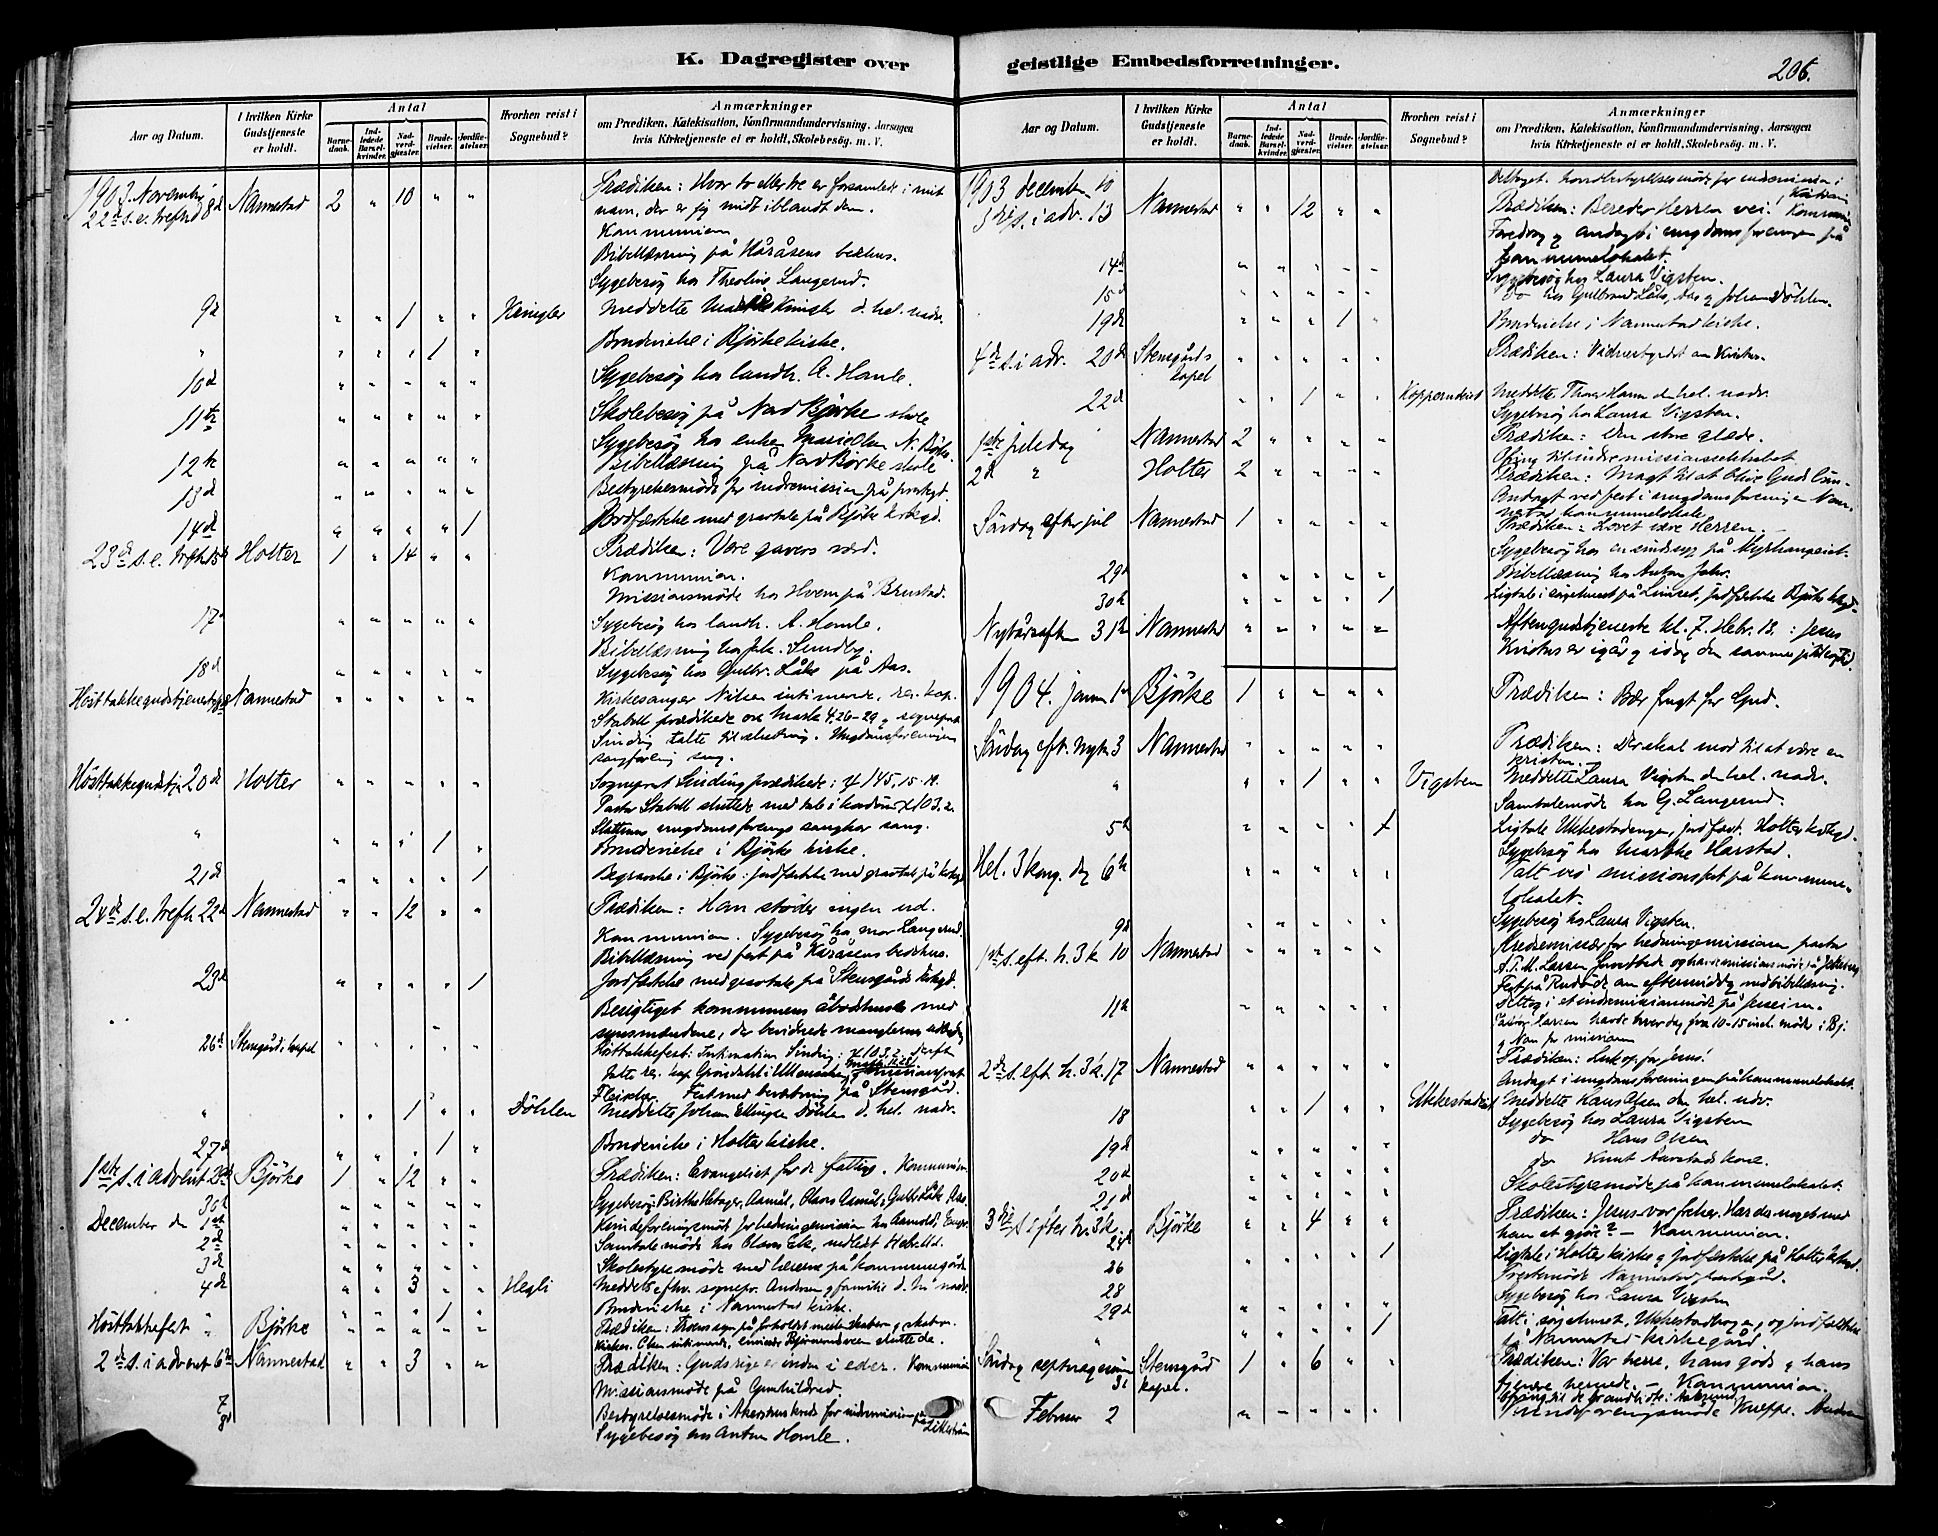 K. Dagregister over
Aar og Datum.
I hvilken Kirke Gudstjeneste er holdt.
Antal
Barnedaab.
Indledede Barselkvinder.
Nadverdgjester.
Brudevielser.
Jordfæstelser.
Hvorhen reist i Sognebud?
Anmærkninger
om Prædiken, Katekisation, Konfirmandundervisning, Aarsagen
hvis Kirketjeneste ei er holdt, Skolebesøg. m. V.
1903. November
22d s. e. trefh. 8d Nannestad 2 " 10 " " Prædiken: Hvor to eller tre er forsamlede i mit
navn, der er jeg midt iblandt dem.
Kommunion
Bibellæsning på Kåråsens bedhus.
Sygebesøg hos Theoline Langerud.
9d " " 1 " " Meddelte d. hel. nadv.
" " " " 1 " Brudevielse i Bjørke kirke.
10d " " " " " Sygebesøg hos landh. A. Homle.
11te " " " " " Skolebesøg på Nord Bjørke skole
Sygebesøg hos enken Marie Olsen N. Bjørke.
12te " " " " " Bibellæsning på Nord Bjørke skole
13d " " " " " Bestyrelsesmøde for indremission på prestegd.
14d " " " " 1 Jordfæstelse med gravtale på Bjørke kirkegd.
23d s. e. trefh. 15d Holter 1 " 14 " " Prædiken: Vore gavers værd.
Kommunion.
Missionsmøde hos Hvem på Brustad.
17d " " " " " Sygebesøg hos landh. A. Homle.
Bibellæsning hos Joh. Sundby.
18d " " " " " Sygebesøg hos Gulbr. Låke på Aas.
Høsttakkegudstjeneste Nannestad " " " " " Kirkesanger Nilsen intimerede, res. kap.
Stabell prædikede over Mark. 4.26-29, sogneprest
Sinding talte til slutning. Ungdomsforeningens
sangforening sang.
Høsttakkegudstj. 20d Holter " " " " " Sogneprest Sinding prædikede: ψ 145, 15-19.
Pastor Stabell sluttede med tale i kordøren ψ 103, 2.
ungdomsforenings sangkor sang.
" " " " 1 " Brudevielse i Bjørke kirke.
21d " " " " 1 Begravelse i Bjørke: jordfæstelse med gravtale på kirkegd.
24d s. e. trefh. 22d Nannestad " " 12 " " Prædiken: Han støder ingen ud.
Kommunion. Sygebesøg hos mor Langerud.
Bibellæsning ved fest på Kåråsens bedehus.
23d " " " " 1 Jordfæstelse med gravtale på Stensgårds kirkegd.
Besigtiget kommunens åbodshuse med
synsmændene, der bevidnede manglernes
26d Stensgårds kapel " " " " " Høsttakkefest: Intimation Sinding: ψ 103, 2. Derefter
talte res. kap. Grøndahl i Ullensaker, missionsprest
Fleischer. Fest med bevertning på Stensgård.
" " " 1 " " Døhlen Meddelte Johan Ellingsen Døhlen d. hel. nadv.
27d " " " 1 " Brudevielse i Holter kirke.
1ste s. i advent 29d Bjørke 1 " 12 " " Prædiken: Evangeliet for de fattige. Kommunion.
30te " " " " " Sygebesøg:
December den 1ste " " " " " Kvindeforeningsmøde for hedningemission hos
2d " " " " " Samtalemøde hos Olaves Eek,
3d " " " " " Skolestyremøde med lærerne på kommunegården
4d " " 3 " " Hegli Meddelte sognepr. Andersen og familie d. h. nadv.
" " " 1 " Brudevielse i Nannestad kirke.
Høsttakkefest " Bjørke " " " " " Prædiken:
2d s. i advent 6te Nannestad " " 3 " " Prædiken: Guds rige er inden i eder. Kommunion
7 Missionsmøde på Gunhildrud.
8d Bestyrelsesmøde i Akershus kreds for indremission på Lillestrøm
Sygebesøg hos Anton Homle.
geistlige Embedsforretninger.
206.
Aar og Datum.
I hvilken Kirke Gudstjeneste er holdt.
Antal
Barnedaab.
Indledede Barselkvinder.
Nadverdgjester.
Brudevielser.
Jordfæstelser.
Hvorhen reist i Sognebud?
Anmærkninger
om Prædiken, Katekisation, Konfirmandundervisning, Aarsagen
hvis Kirketjeneste ei er holdt, Skolebesøg. m. V.
1903 December 10 Deltaget i hovedbestyrelsesmøde for indremission i Kristiania
3die s. i adv. 13 Nannestad " " 12 " " Prædiken: Bereder Herren vei. Kommunion
Foredrag og andagt i ungdomsforeningen på
kommunelokalet.
14d " " " " " Sygebesøg hos Laura Vigsten.
15d " " " " " do hos Gulbrand Låke, Aas og Johan Døhlen.
19de " " " 1 " Brudevielse i Nannestad kirke.
4de s. i adv. 20de Stensgårds kapel " " " " " Prædiken: Vidnesbyrdet om Kristus.
22d " " 1 " " Meddelte Thor Hansen den hel. nadv.
Sygebesøg hos Laura Vigsten.
1ste juledag Nannestad 2 " " " " Prædiken: Den store glæde.
Ofring til indremissionsselskabet
2d " Holter 2 " " " " Prædiken: Magt til at blive Guds børn.
Andagt ved fest i ungdomsforeningen Nannestad
kommunelokale.
Søndag efter jul Nannestad 1 " " " " Prædiken: Lovet være Herren.
Sygebesøg hos en sindssyg på Myrhangeiet.
29d " " " " " Bibellæsning hos Anton
30te " " " " 1 Ligtale i sørgehuset på Linset, jordfæstelse Bjørke kirkegd.
Nytårsaften 31te Nannestad " " " " " Aftengudstjeneste kl. 7. Hebr. 13.: Jesus
Kristus er igår og idag den samme
1904. januar 1ste Bjørke 1 " " " " Prædiken: Bær frugt for Gud.
Søndag eft. nytår 3 Nannestad " " " " " Prædiken: Der skal mod til at være en
kristen.
" " " 1 " " Vigsten Meddelte Laura Vigsten den hel. nadv.
Samtalemøde hos G. Langerud.
5te " " " " 1 Ligtale Ukkestadengen, jordfæst. Holter kirkegd.
Sygebesøg hos Marthe Harstad.
Hel. 3 kong. dag 6te " " " " " Talt ved missionsfest på kommunelokalet.
9d Sygebesøg hos Laura Vigsten.
1ste s. eft. h. 3 k. 10 Nannestad " " " " " Kredsemissær for hedningemissionen pastor
A. T. M. Larsen
Fest på Rud om eftermiddag med bibellæsning.
11te " " " " " Deltog i et indremissionsmøde på Jessheim.
Pastor Larsen havde hver dag fra 10-15 incl. møder i Bj.
og Nan. for missionen
2de s. eft. h. 3 k. 17 Nannestad " " " " " Prædiken: Luk op for Jesus!
Andagt i ungdomsforeningen på kommunelokalet.
18 " " 1 " " Meddelte Hans Olsen den hel. nadv.
Sygebesøg hos Laura Vigsten
19d " " " " " do Hans Olsen
20d " " " " " do Knut Aarstads kone.
21d " " " " " Skolestyremøde på kommunelokalet.
3die s. efter h. 3 k. 24d Bjørke " " 4 " " Prædiken: Jesus vor frelser. Har du noget med
ham at gjøre? – Kommunion.
26 " " " " 1 Ligtale i Holter kirke og jordfæstelse på Holter kirkegd.
28 Prestemøde Nannestad prestegård.
29d " " " " " Sygebesøg hos Laura Vigsten
" " " " " 1 Talt i sørgehuset, Ukkestadbergen, og jordfæstelse
på Nannestad kirkegård.
Søndag septuagesima 31 Stensgård kapel. 1 " 6 " " Prædiken: Vor herre, hans gods og hans
tjenere hernede. – Kommunion.
Ofring til de brandlidte i Aalesund.
Februar 2 " " " " " Kvindeforeningsmøde Kneppe.